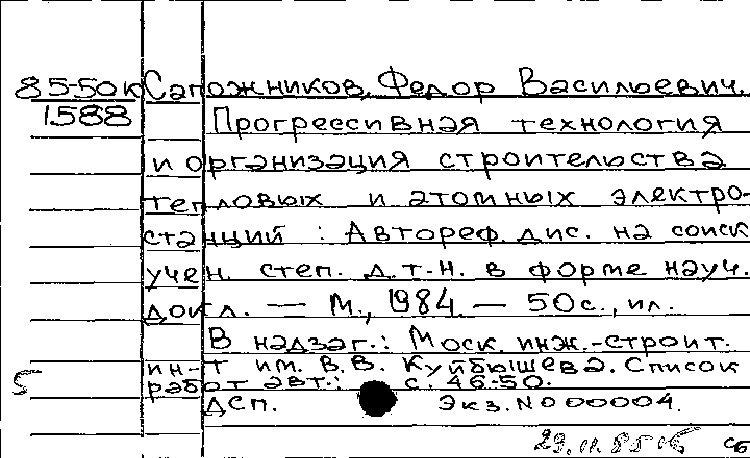 85-50к Сапожников, Федор Васильевич.
1588 Прогрессивная технология
и организация строительства
тепловых и атомных электро-
станций : Автореф. дис. на соиск
учен. степ. д.т.н. в форме науч.
докл. — М., 1984. — 50с., ил.
В надзаг.: Моск. инж.-строит.
ин-т им. В.В. Куйбышева. Список
работ авт.: с. 46-50.
ДСП. Экз. N000004.
5
29.11.85
сб